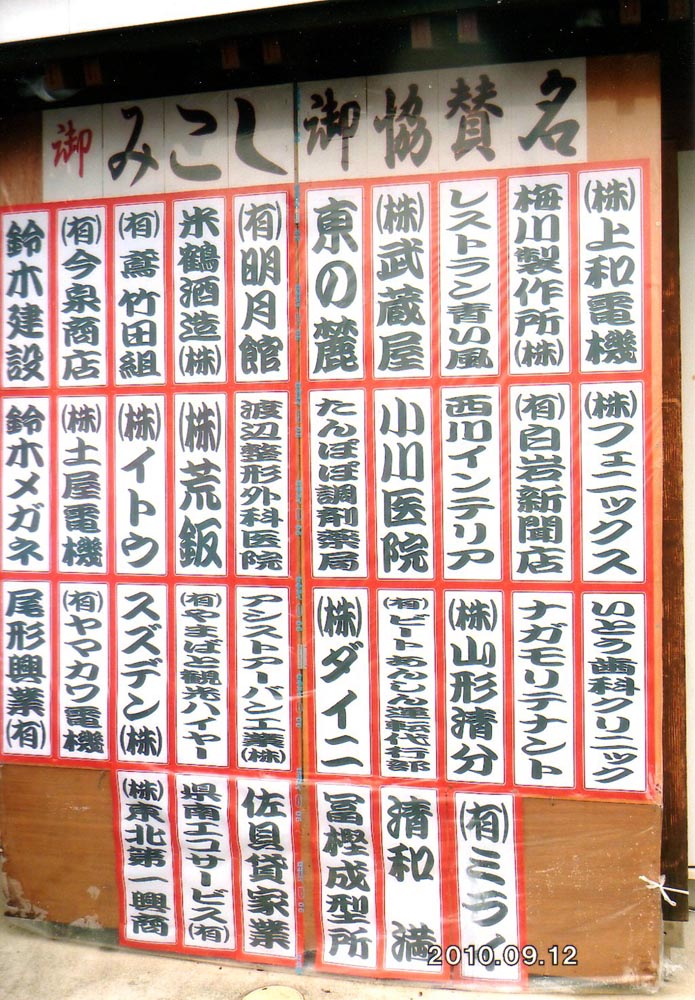 御みこし御協賛名
(株)上和電機
梅川製作所(株)
レストラン青い風
(株)武蔵屋
東の麓
(有)明月館
米鶴酒造(株)
(有)鳶竹田組
(有)今泉商店
鈴木建設
(株)フェニックス
(有)白岩新聞店
西川インテリア
小川医院
たんぽぽ調剤薬局
渡辺整形外科医院
(株)荒鈑
(株)イトウ
(株)土屋電機
鈴木メガネ
いとう歯科クリニック
ナガモリテナント
(株)山形清分
(有)ビートあんしん運転代行部
(株)ダイニ
アシストアーバン工業(株)
(有)やまばと観光ハイヤー
スズデン(株)
(有)ヤマカワ電機
尾形興業(有)
(有)ミライ
清和 満
冨樫成型所
佐貝貸家業
県南エコサービス(有)
(株)東北第一興商
2010.09.12